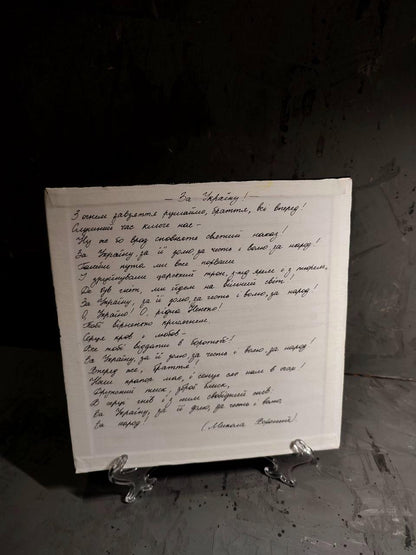 — За Україну! —
З огнем завзяття рушаймо, браття, всі вперед!
Слушний час кличе нас –
Ну же бо враз сповняти святий наказ!
За Україну, за її долю, за честь і волю, за народ!
Ганебні пута ми вже порвали
І зруйнували царський трон,
Де був гніт, ми йдем на вільний світ!
За Україну, за її долю, за честь і волю, за народ!
О, Україно! О, рідна Ненько!
Тобі вірненько присягнем.
Серця кров і любов –
Все тобі віддати в боротьбі!
За Україну, за її долю, за честь і волю, за народ!
Вперед же, браття!
Наш прапор має, і сонце сяє нам в очах!
Дружний тиск, зброї блиск,
В серці гнів і з ним свободний спів:
За Україну, за її долю, за честь і волю,
За народ!
(Микола Вороний)